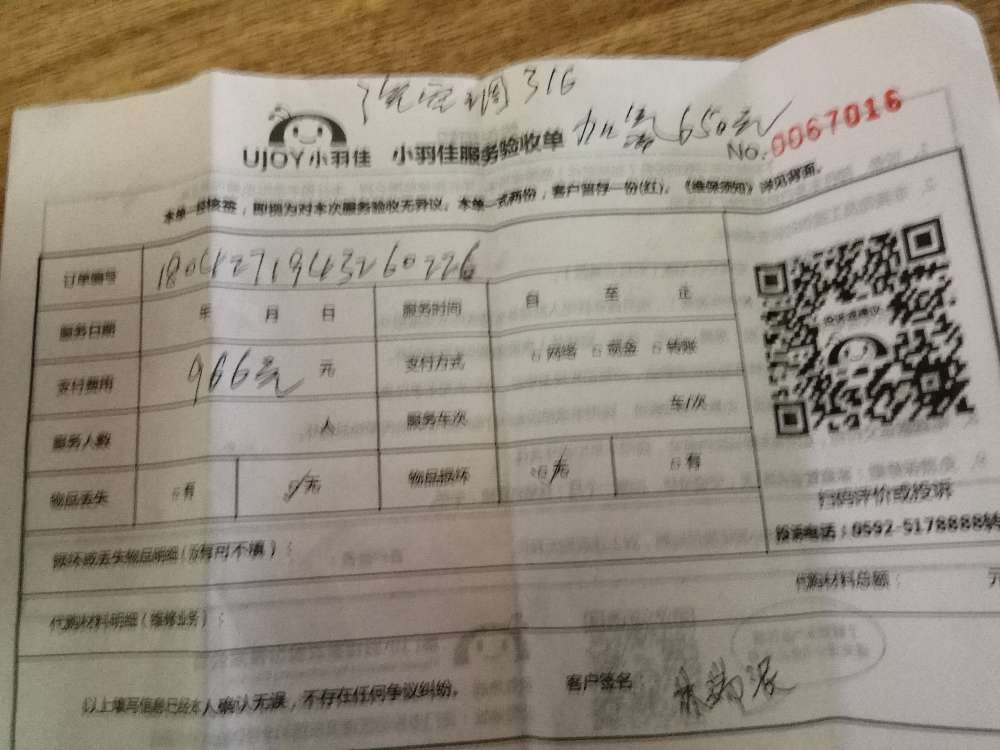 空调316
UJOY小羽佳 小羽佳服务验收单 加氟650元
No.0067016
本单一经签，即视为对本次服务验收无异议。本单一式两份，客户留存一份(红)。《维保须知》详见背面。
订单编号
服务日期 年 月 日 服务时间 自 至 止
支付费用 966元 元 支付方式 网络 现金 转账
服务人数 人 服务车次 车/次
物品丢失 有 无 物品损坏 无 有
投诉或建议
扫码评价或投诉
投诉电话：0592-5178888转
损坏或丢失物品明细（没有可不填）：
代购材料总额： 元
代购材料明细（维修业务）：
以上填写信息已经本人确认无误，不存在任何争议纠纷。 客户签名